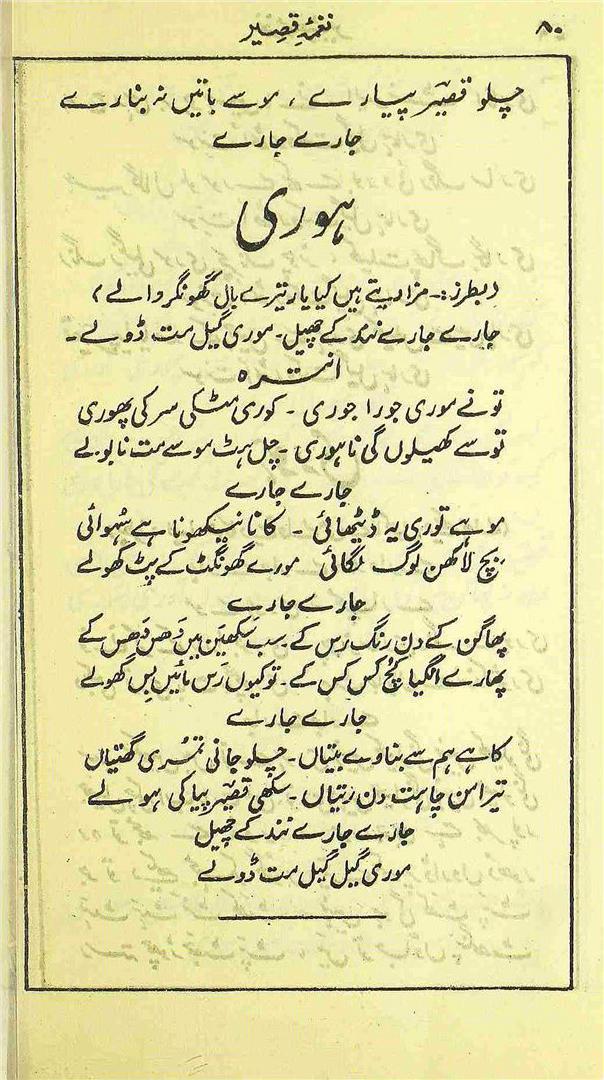 ۸۰
نغمۂ قصیر
چلو قصیر پیارے ، موسے باتیں نہ بنا رے
جارے جارے
ہوری
(بطرز:۔ مزا دیتے ہیں کیا یار تیرے بال گھونگر والے)
جارے جارے نند کے چھیل۔ موری گیل مت ڈولے۔
انترہ
تونے موری جورا جوری ۔ کوری مٹکی سر کی پھوری
توسے کھیلوں گی نا ہوری ۔ چل ہٹ موسے مت نا بولے
جارے جارے
موہے توری یہ ڈیٹھائی ۔ کانا نیکھونا ہے سُہوائی
بیچ لاکھن لوگ لگائی مورے گھونگٹ کے پٹ کھولے
جارے جارے
پھاگن کے دن رنگ رس کے۔ سب سکھین ہیں دَھس دَھس کے
پھارے انگیا کچ کس کس کے۔ توکیوں رَس مائیں بِس گھولے
جارے جارے
کاہے ہم سے بناوے بتیاں۔ چلو جانی تمُری گھتیاں
تیرا من چاہت دن رتیاں۔ سکھی قصیر پیا کی ہولے
جارے جارے نند کے چھیل
موری گیل گیل مت ڈولے